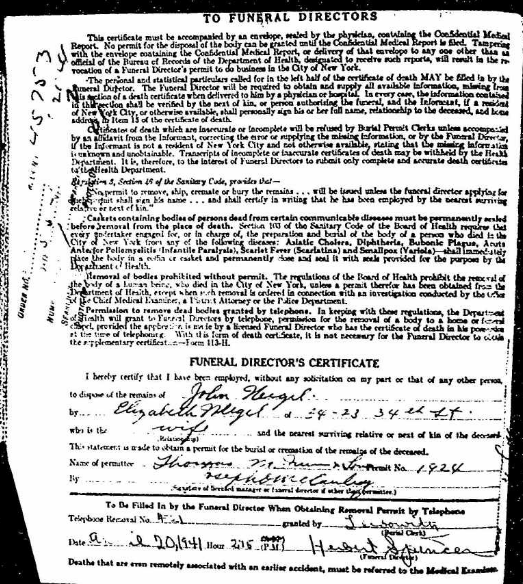 TO FUNERAL DIRECTORS
This certificate must be accompanied by an envelope, sealed by the physician, containing the Confidential Medical
Report. No permit for the disposal of the body can be granted until the Confidential Medical Report is filed. Tampering
with the envelope containing the Confidential Medical Report, or delivery of that envelope to any one other than an
official of the Bureau of Records of the Department of Health, designated to receive such reports, will result in the re-
vocation of a Funeral Director's permit to do business in the City of New York.
The personal and statistical particulars called for in left half of the certificate of death MAY be filled in by the
Funeral Director. The Funeral Director will be required to obtain and supply all available information, missing from
this section of a death certificate when delivered to him by a physician or hospital. In every case, the information contained
in this section shall be verified by the next of kin, or person authorizing the funeral, and the Informant, if a resident
of New York City, or otherwise available, shall personally sign his or her full name, relationship to the deceased, and home
address, in Item 15 of the certificate of death.
Certificates of death which are inaccurate or incomplete will be refused by Burial Permit Clerks unless accompanied
by an affidavit from the Informant, correcting the error or supplying the missing information, or by the Funeral Director,
if the Informant is not a resident of New York City and not otherwise available, stating that the missing information
is unknown and unobtainable. Transcripts of incomplete or inaccurate certificates of death may be withheld by the Health
Department. It is, therefore, to the interest of Funeral Directors to submit only complete and accurate death certificates
to the Health Department.
Section 16 of the Sanitary Code, provides that—
permit to remove, ship, cremate or bury the remains . . . will be issued unless the funeral director applying for
such permit shall sign his name . . . and shall certify in writing that he has been employed by the nearest surviving
relative or next of kin."
Caskets containing bodies of persons dead from certain communicable diseases must be permanently sealed
before removal from the place of death. Section 103 of the Sanitary Code of the Board of Health requires that
every undertaker engaged for, or in charge of, the preparation and burial of the body of a person who died in the
City of New York from any of the following diseases: Asiatic Cholera, Diphtheria, Bubonic Plague, Acute
Anterior Poliomyelitis (Infantile Paralysis), Scarlet Fever (Scarlatina) and Smallpox (Variola)—shall immediately
place the body in a coffin or casket and permanently close and seal it with seals provided for the purpose by the
Department of Health.
Removal of bodies prohibited without permit. The regulations of the Board of Health prohibit the removal of
the body of a human being, who died in the City of New York, unless a permit therefor has been obtained from the
Department of Health, except when such removal is ordered in connection with an investigation conducted by the Office
of the Chief Medical Examiner, a District Attorney or the Police Department.
Permission to remove dead bodies granted by telephone. In keeping with these regulations, the Department
of Health will grant to Funeral Directors by telephone, permission for the removal of a body to a home or funeral
chapel, provided the application is made by a licensed Funeral Director who has the certificate of death in his possession
at the time of telephoning. With this form of death certificate, it is not necessary for the Funeral Director to obtain
the supplementary certification—Form 113-H.
FUNERAL DIRECTOR'S CERTIFICATE
I hereby certify that I have been employed, without any solicitation on my part or that of any other person,
to dispose of the remains of John
by Elizabeth of 34th St.
who is the wife and the nearest surviving relative or next of kin of the deceased
(Relationship)
This statement is made to obtain a permit for the burial or cremation of the remains of the deceased.
Name of permittee Thomas Permit No. 1924
By
To Be Filled In by the Funeral Director When Obtaining Removal Permit by Telephone
Telephone Removal No. granted by
(Burial Clerk)
Date 20, 1941 Hour 2:15 (P.M.) Herbert Spencer
(Funeral Director)
Deaths that are even remotely associated with an earlier accident, must be referred to the Medical Examiner.